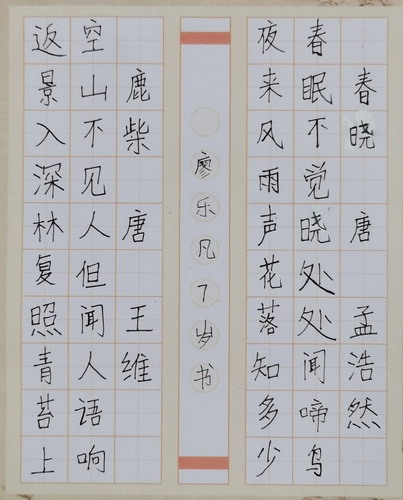 春晓 唐 孟浩然
春眠不觉晓处处闻啼鸟
夜来风雨声花落知多少
廖乐凡7岁书
鹿柴 唐 王维
空山不见人但闻人语响
返景入深林复照青苔上